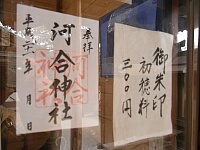 奉拝
河合神社
平成二十一年 月 日
御朱印
初穂料
三〇〇円